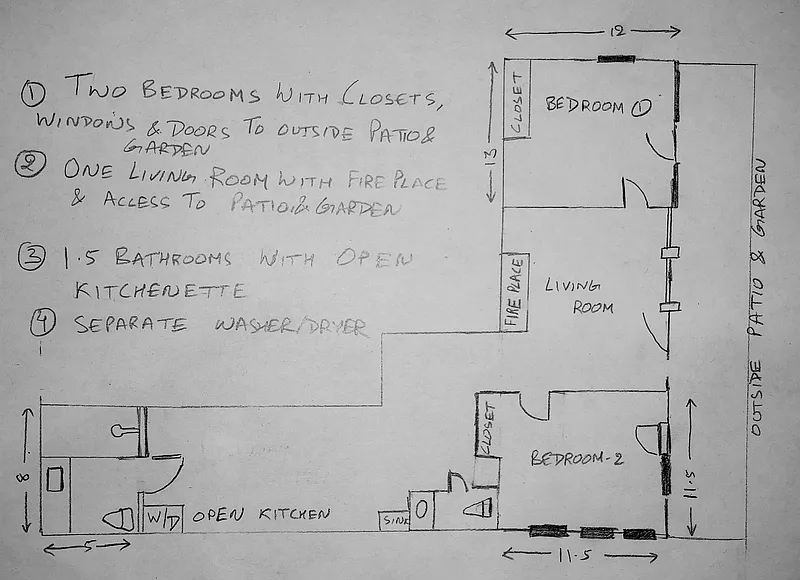 ① TWO BEDROOMS WITH CLOSETS,
WINDOWS & DOORS TO OUTSIDE PATIO &
GARDEN
② ONE LIVING ROOM WITH FIRE PLACE
& ACCESS TO PATIO & GARDEN
③ 1.5 BATHROOMS WITH OPEN
KITCHENETTE
④ SEPARATE WASHER/DRYER
12
CLOSET
BEDROOM ①
13
FIRE PLACE
LIVING
ROOM
OUTSIDE PATIO & GARDEN
CLOSET
BEDROOM-2
11.5
8
W/D
OPEN KITCHEN
SINK
5
11.5